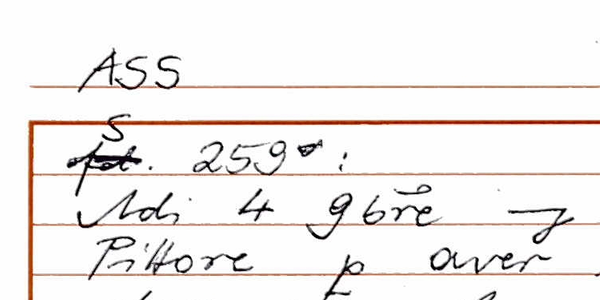 ASS
S
fol. 259v:
Adi 4 9bre —
Pittore p aver